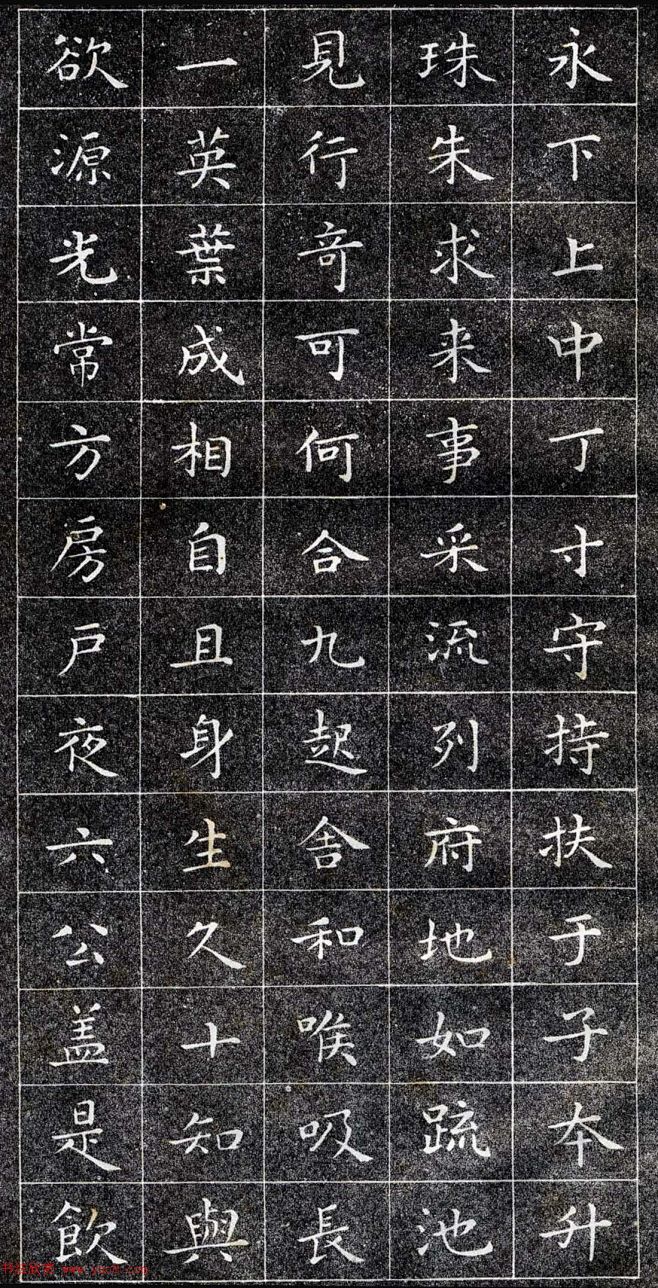 永下上中丁寸守持扶于子本升
珠朱求来事采流列府地如䟽池
見行竒可何合九起舎和喉吸長
一英葉成相自且身生久十知與
欲源光常方房戸夜六公盖是飲